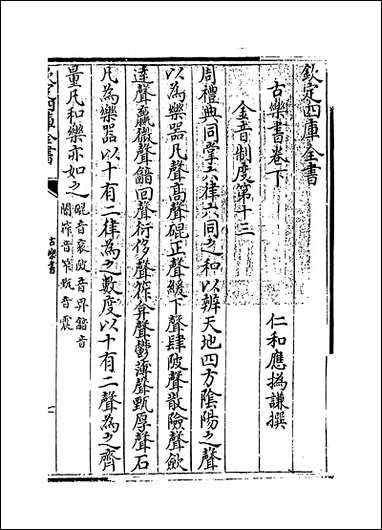 欽定四庫全書
古樂書卷下
仁和應撝謙撰
金音制度第十三
周禮典同掌六律六同之和以辨天地四方陰陽之聲
以為樂器凡聲高聲䃂正聲緩下聲肆陂聲散險聲斂
達聲贏微聲韽回聲衍侈聲筰弇聲鬱薄聲甄厚聲石
凡為樂器以十有二律為之數度以十有二聲為之齊
量凡和樂亦如之
音袞陂音畀韽音
闇筰音窄甄音震
欽定四庫全書
古樂書